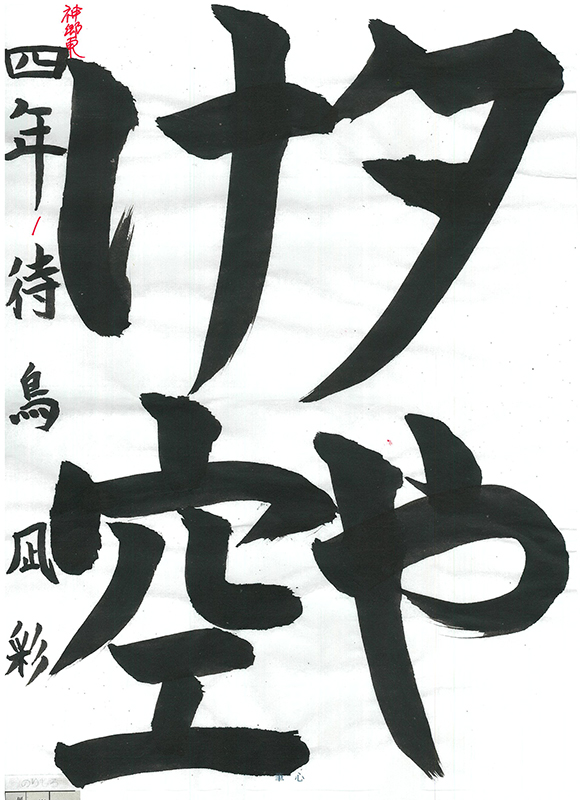 夕や
け空
四年 待鳥凪彩
神郷東